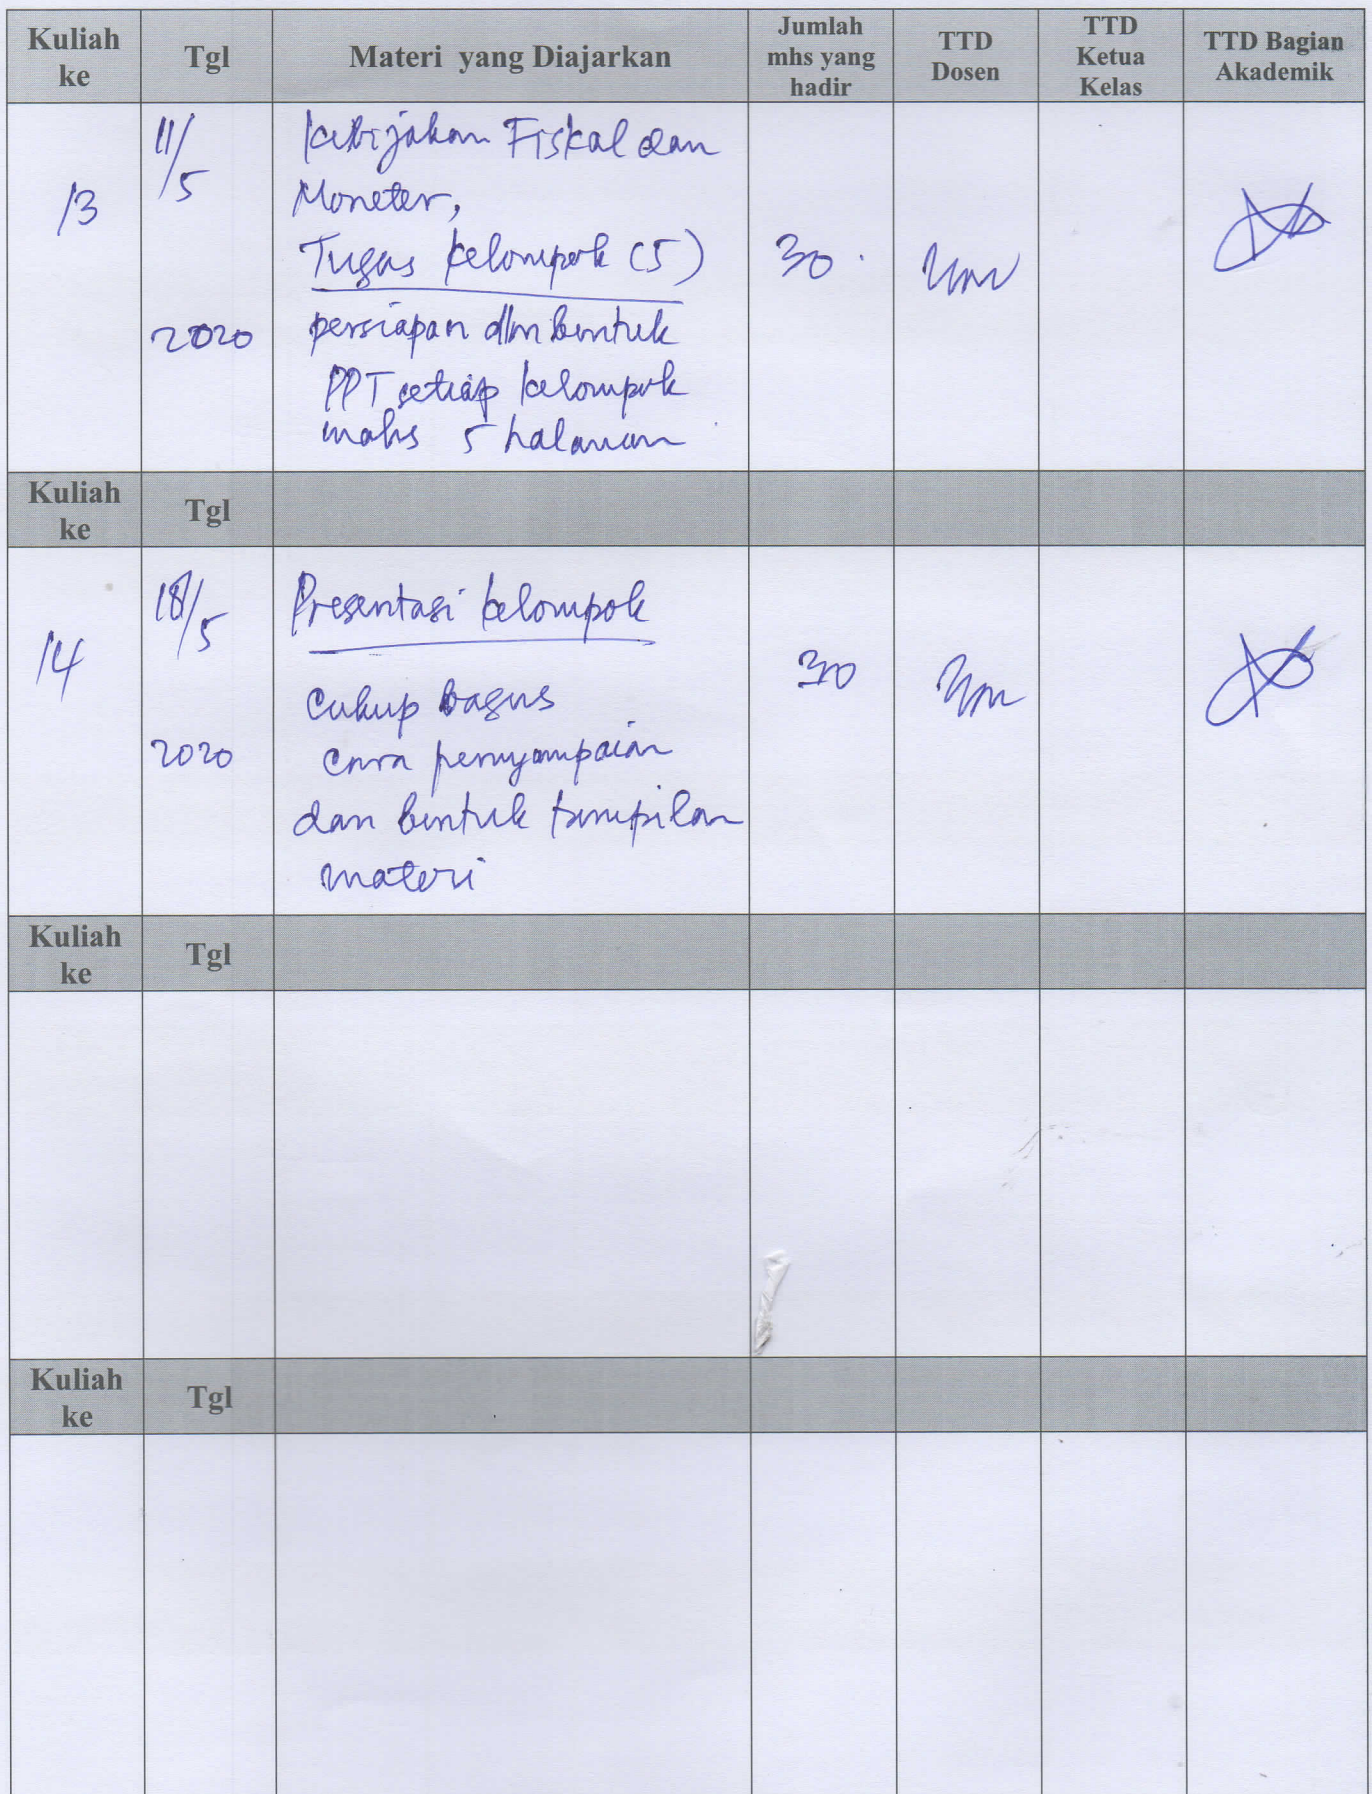 Kuliah ke Tgl Materi yang Diajarkan Jumlah mhs yang hadir TTD Dosen TTD Ketua Kelas TTD Bagian Akademik
13
11/5
2020
Kebijakan Fiskal dan
Moneter,
Tugas kelompok (5)
persiapan dlm bentuk
PPT setiap kelompok
maks 5 halaman
30
Kuliah ke Tgl
14
18/5
2020
Presentasi kelompok
Cukup bagus
cara penyampaian
dan bentuk tampilan
materi
30
Kuliah ke Tgl
Kuliah ke Tgl